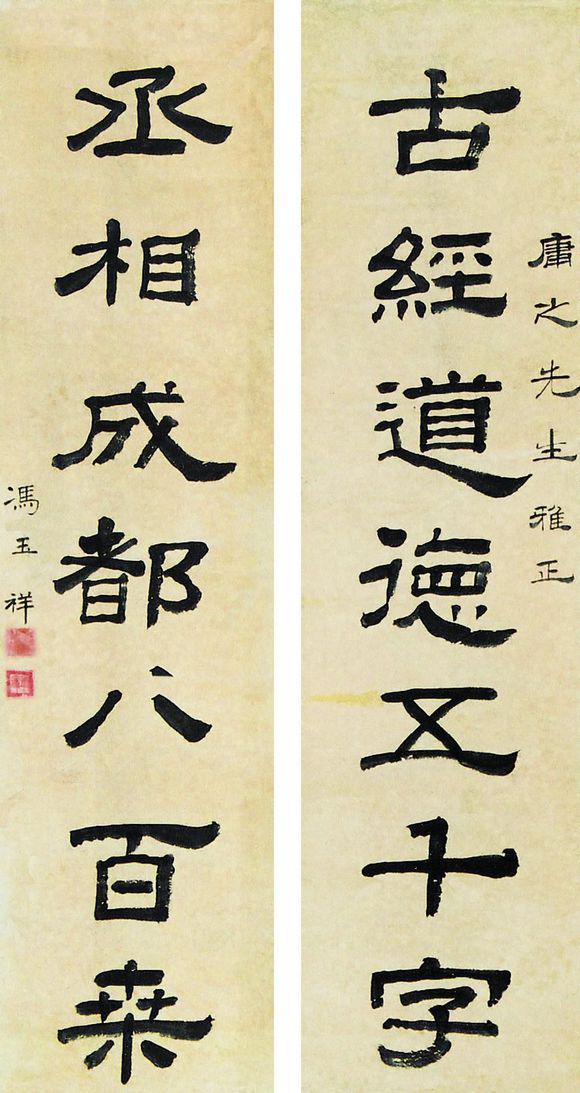 庸之先生雅正
古經道德五千字
丞相成都八百桒
馮玉祥